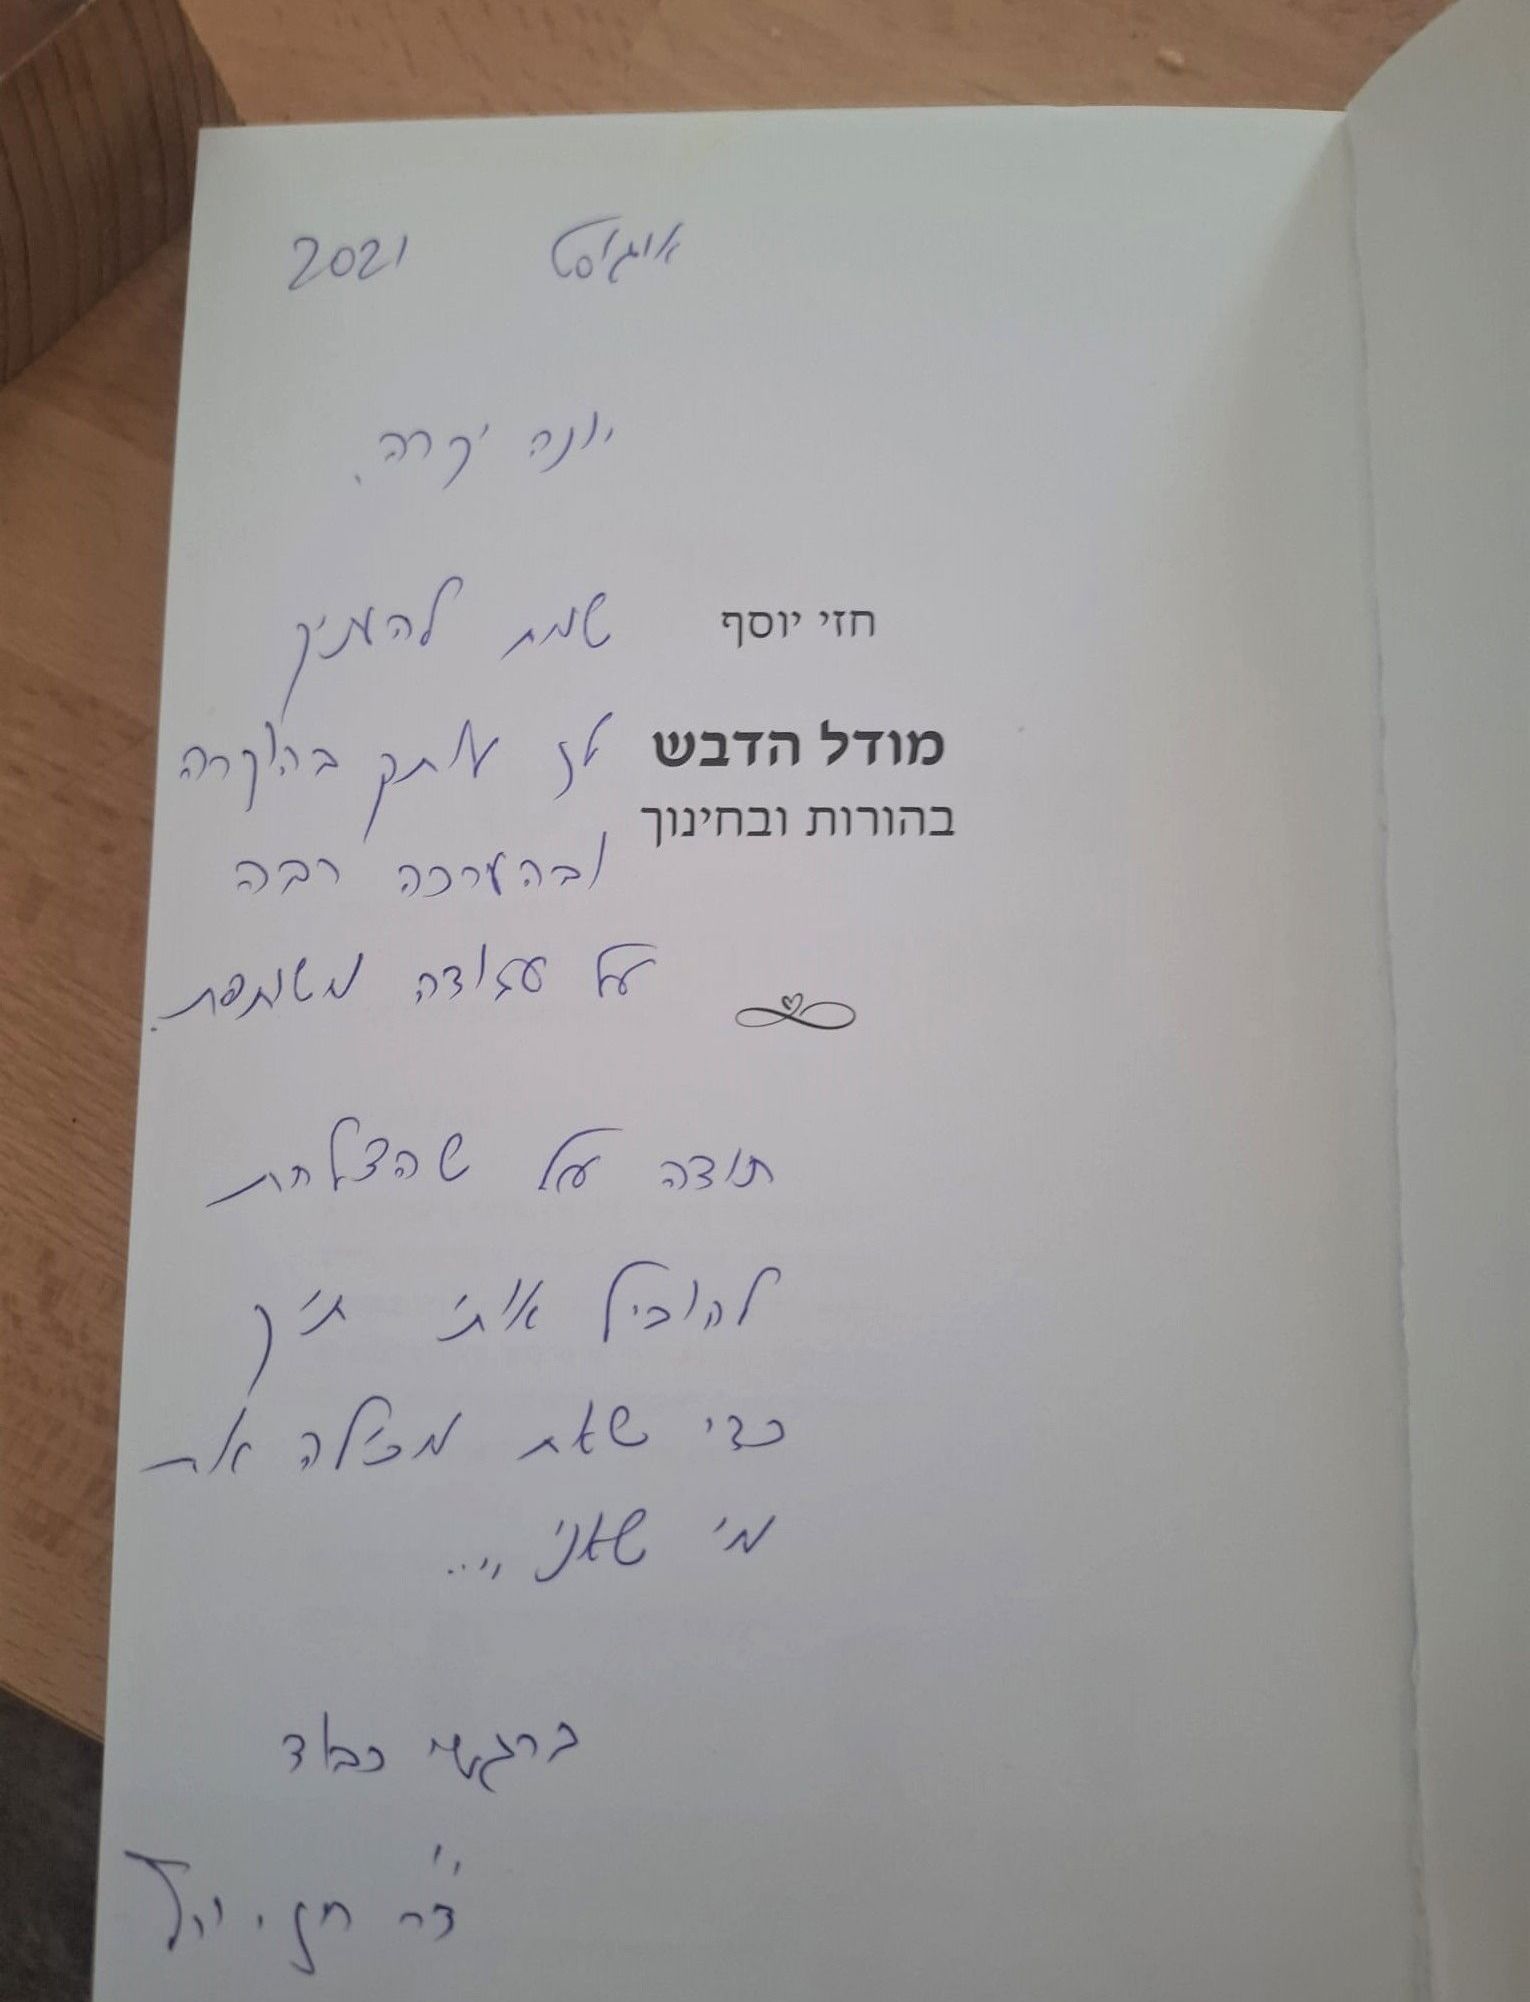 אוגוסט 2021
יונה יקרה,
שמח להעניק
לך עותק בהוקרה
ובהערכה רבה
על עבודה משותפת.
חזי יוסף
מודל הדבש
בהורות ובחינוך
תודה על שהצלחת
להוביל אותי
כדי שאת מכילה את
מי שאני...
ברגשי כבוד
ד"ר חזי יוסף